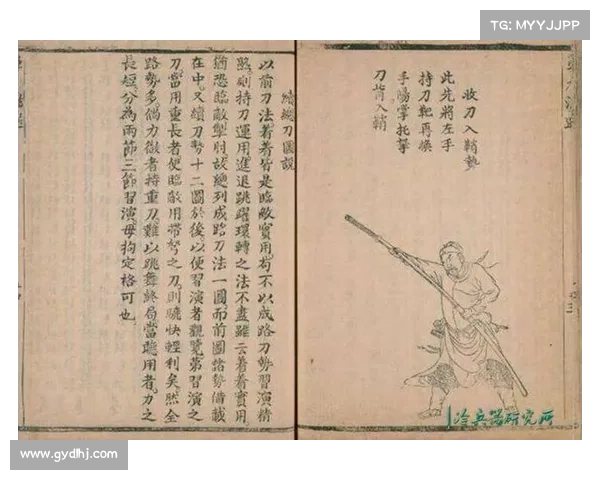 TG: MYYJJPP
收刀入鞘勢
此先將左手
持刀靶再換
手陽掌托拏
刀背入鞘
續總刀圖說
以前刀法著著皆是臨敵實用苟不以成路刀勢習演精
熟則持刀運用進退跳躍環轉之法不盡雖云著著實用
猶恐臨敵掣肘故總列成路刀法一圖而前圖諸勢備載
在中又續刀勢十二圖於後以便習演者觀覽第習演之
刀當用重長者使臨敵用帶弩之刀則驍快輕利矣然全
路勢多倘力微者持重刀難以跳舞終局當聽用者力之
長短分為兩節三節習演毋拘定格可也
冷兵器研究所
www.gydhj.com